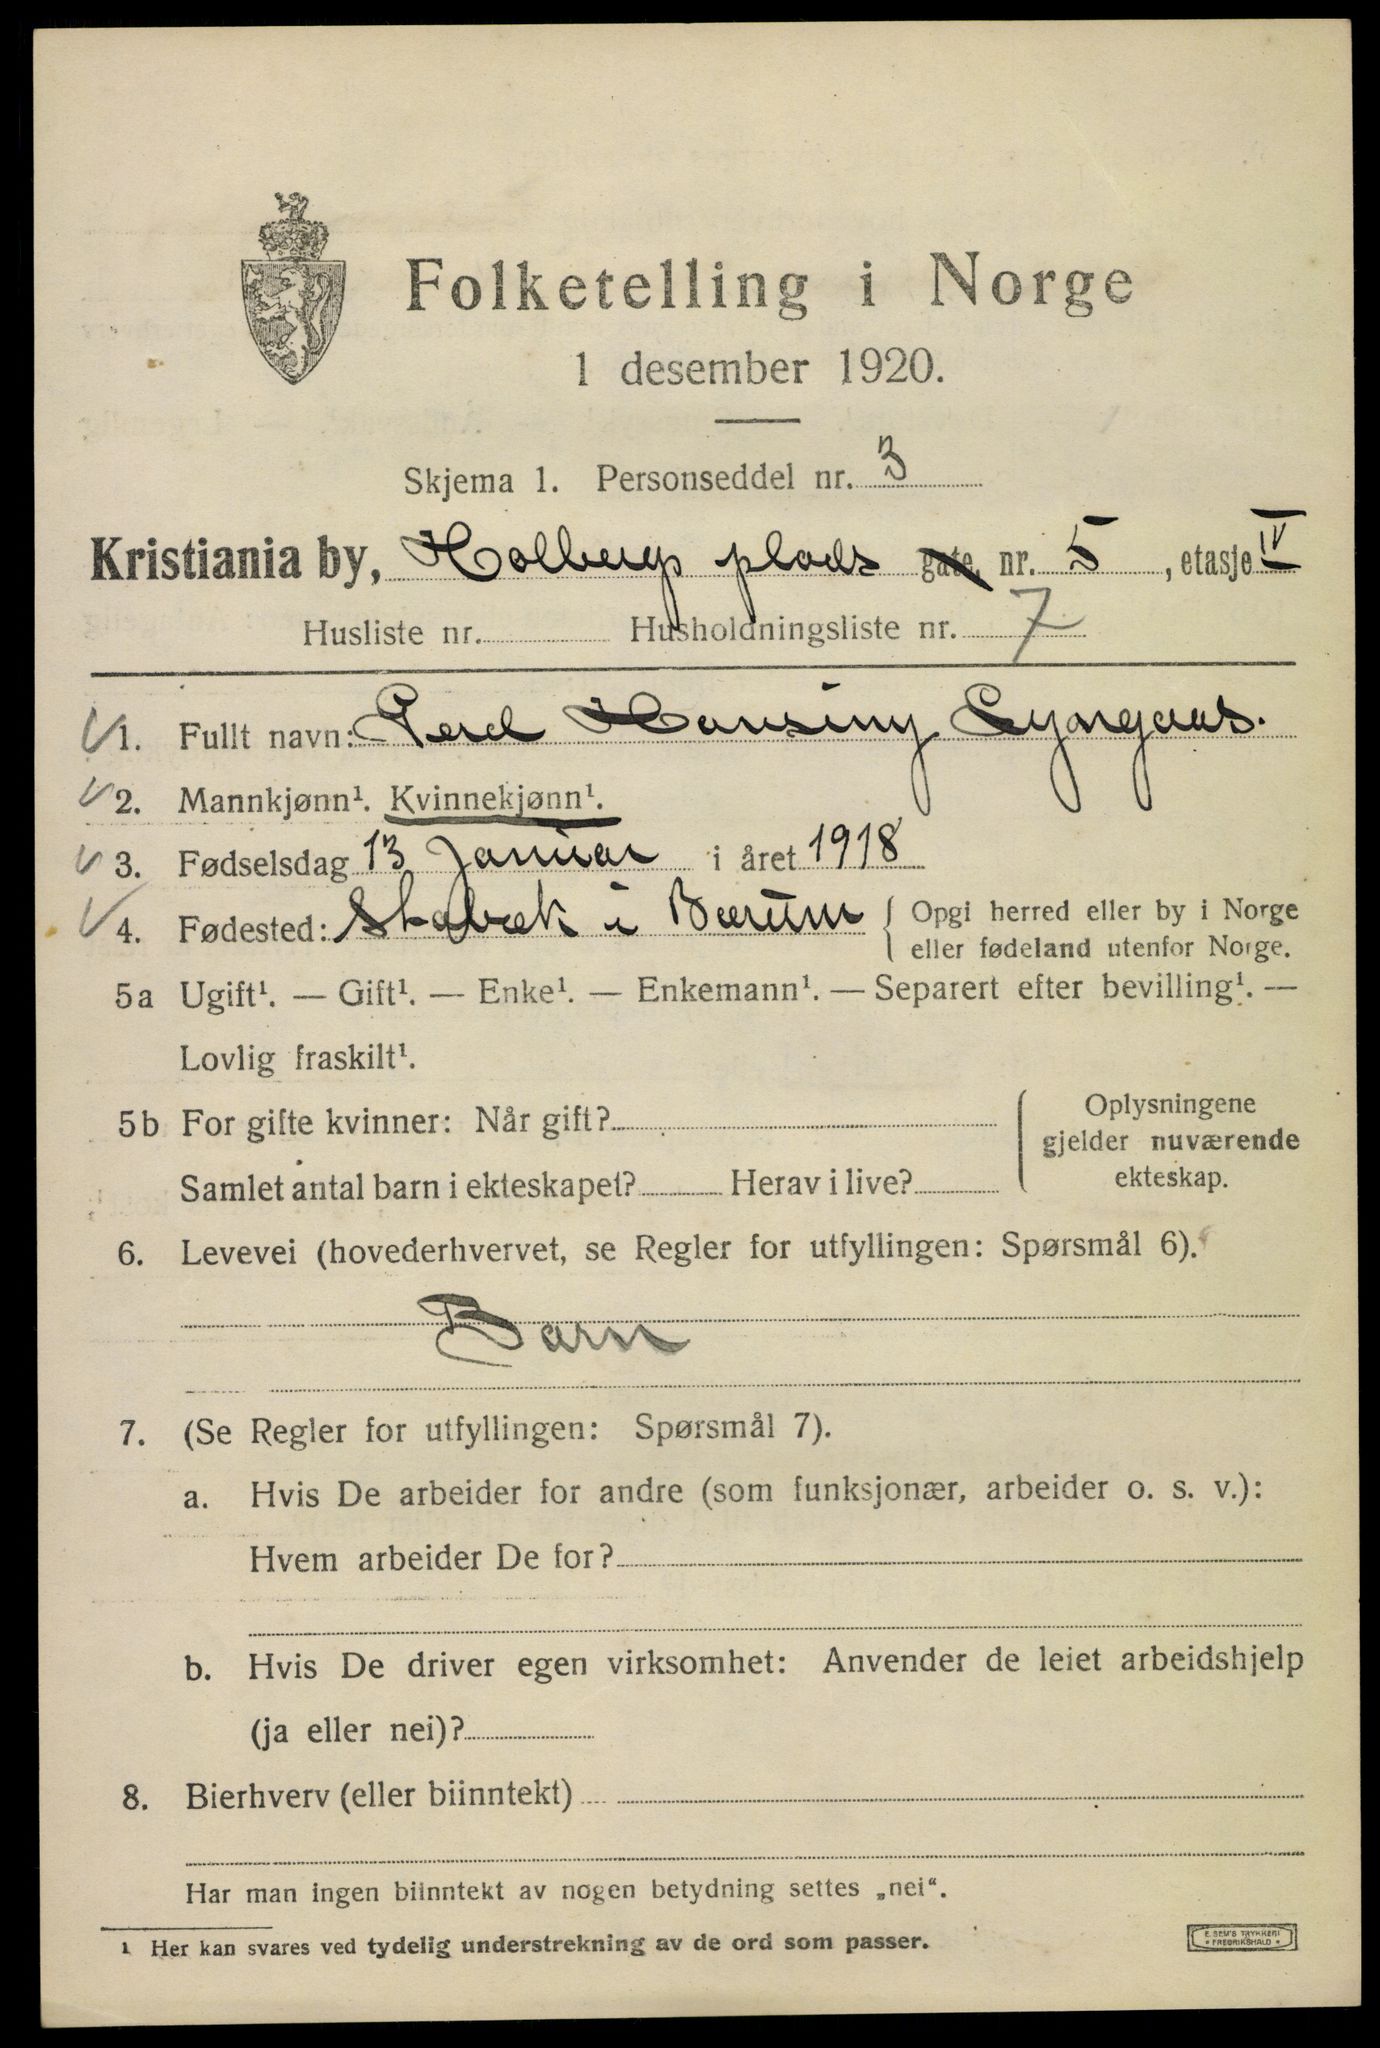 Folketelling i Norge
1 desember 1920.
Skjema 1. Personseddel nr. 3
Kristiania by, Holbergs plads gate nr. 5, etasje IV
Husliste nr. Husholdningsliste nr. 7
1. Fullt navn: Gerd
2. Mannkjønn¹. Kvinnekjønn¹.
3. Fødselsdag 13 Januar i året 1918
4. Fødested: Stabæk i Bærum { Opgi herred eller by i Norge
eller fødeland utenfor Norge.
5a Ugift¹. — Gift¹. — Enke¹. — Enkemann¹. — Separert efter bevilling¹. —
Lovlig fraskilt¹.
5b For gifte kvinner: Når gift?
Samlet antal barn i ekteskapet? Herav i live?
Oplysningene
gjelder nuværende
ekteskap.
6. Levevei (hovederhvervet, se Regler for utfyllingen: Spørsmål 6).
Barn
7. (Se Regler for utfyllingen: Spørsmål 7).
a. Hvis De arbeider for andre (som funksjonær, arbeider o. s. v.):
Hvem arbeider De for?
b. Hvis De driver egen virksomhet: Anvender de leiet arbeidshjelp
(ja eller nei)?
8. Bierhverv (eller biinntekt)
Har man ingen biinntekt av nogen betydning settes „nei".
¹ Her kan svares ved tydelig understrekning av de ord som passer.
E. SEM'S TRYKKERI
FREDRIKSHALD